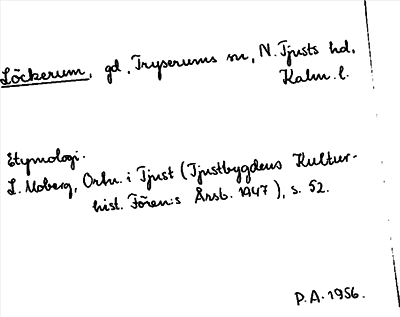 Löckerum, gd, Tryserums sn, N. Tjusts hd,
Kalm. l.
Etymologi.
L. Moberg, Ortn. i Tjust (Tjustbygdens Kultur-
hist. Fören:s Årsb. 1947), s. 52.
P.A. 1956.